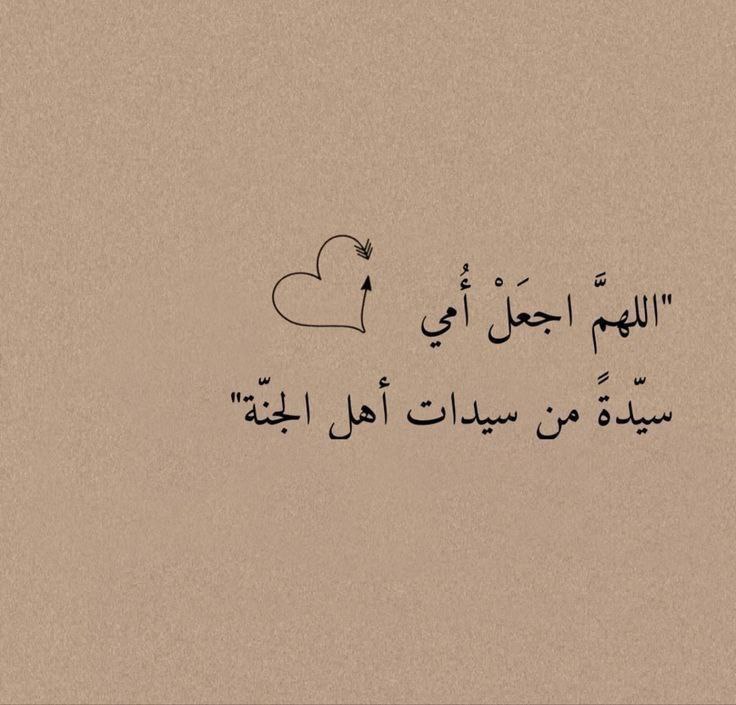 "اللهمَّ اجعَلْ أُمي
سيّدةً من سيدات أهل الجنّة"